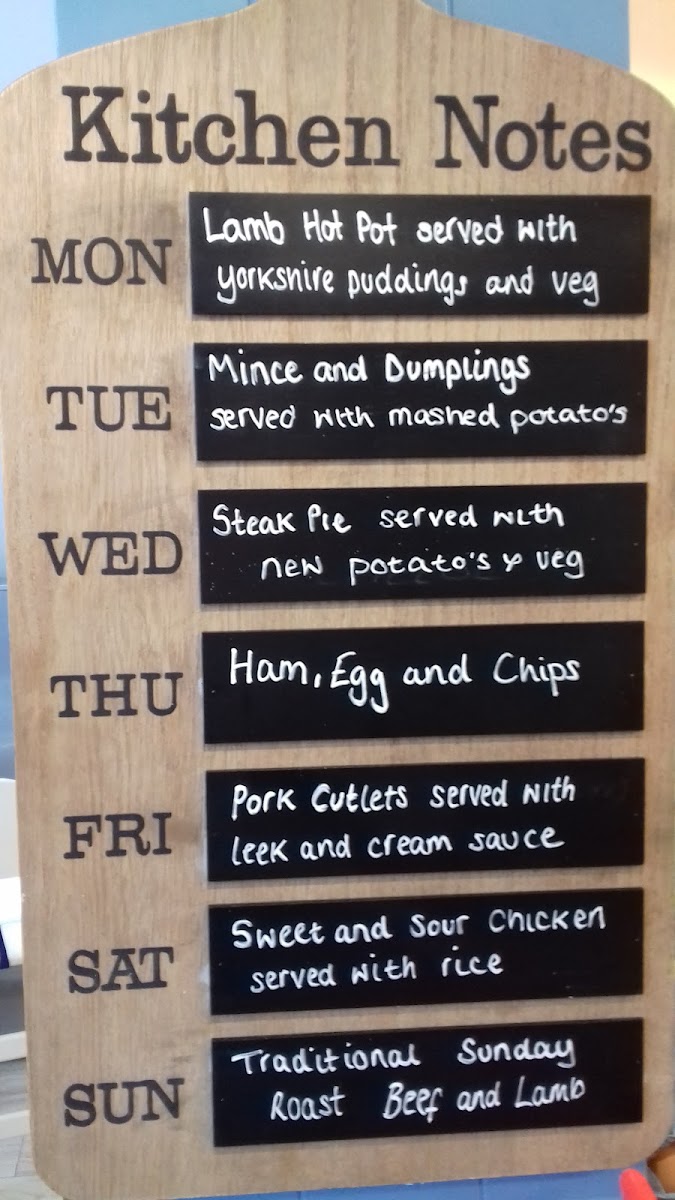 Kitchen Notes
MON
Lamb Hot Pot served with
yorkshire puddings and veg
TUE
Mince and Dumplings
served with mashed potato's
WED
Steak Pie served with
new potato's & veg
THU
Ham, Egg and Chips
FRI
Pork Cutlets served with
leek and cream sauce
SAT
Sweet and Sour Chicken
served with rice
SUN
Traditional Sunday
Roast Beef and Lamb